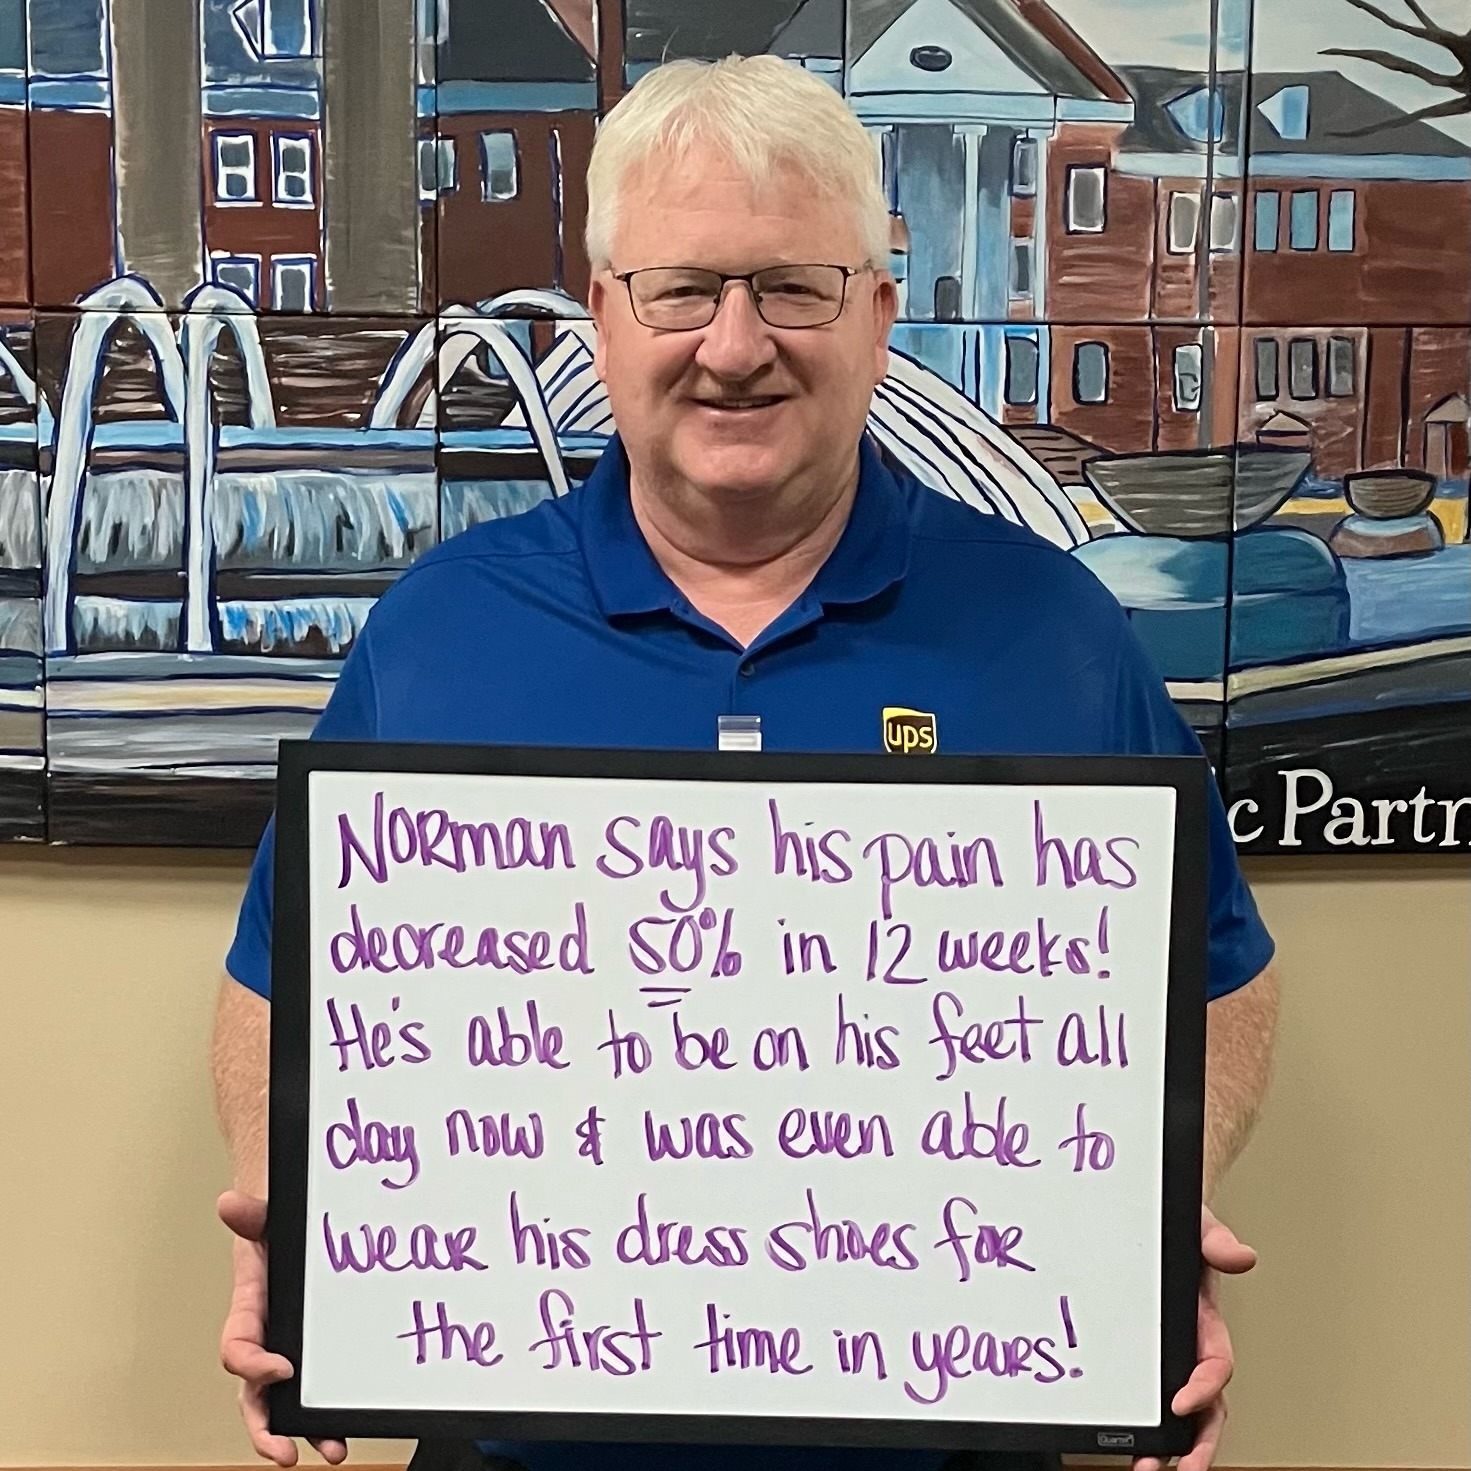 ups
c Partn
Norman says his pain has
decreased 50% in 12 weeks!
He's able to be on his feet all
day now & was even able to
wear his dress shoes for
the first time in years!
Quartet